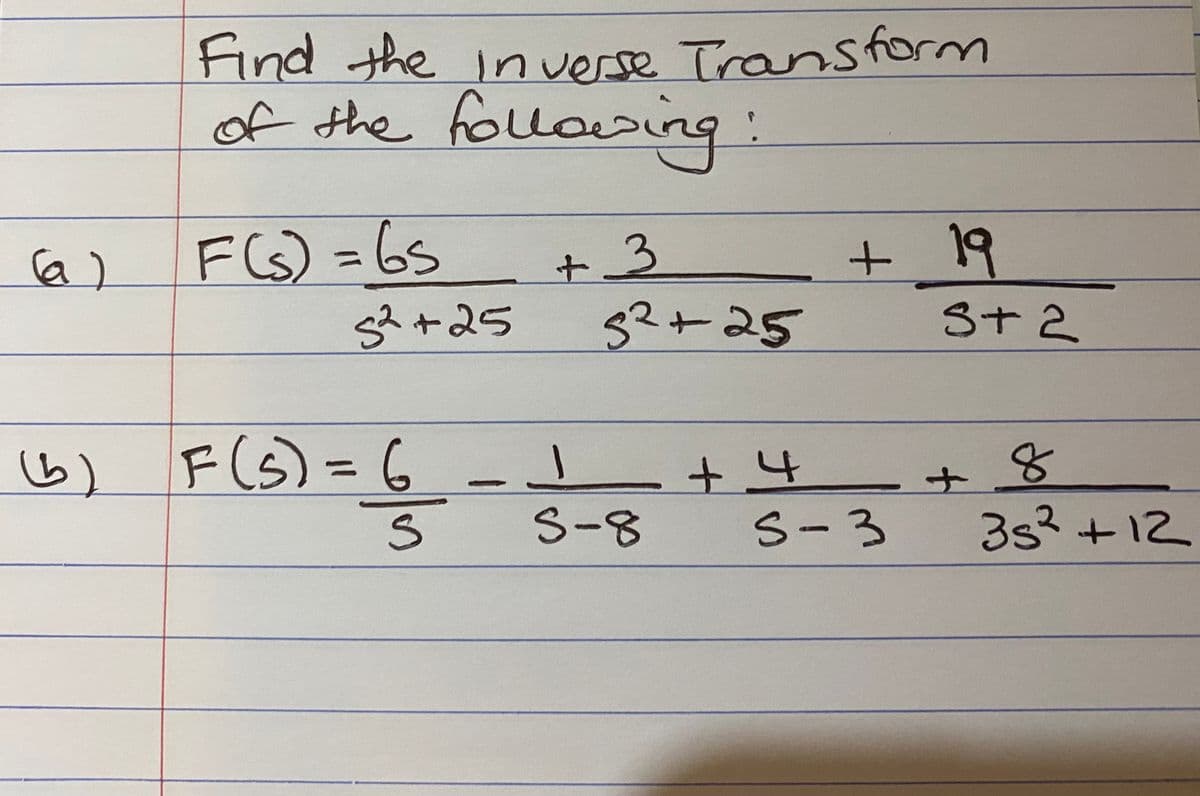 Find the inverse Transform
of the following :
(a) F(s) = 6s/(s² + 25) + 3/(s² + 25) + 19/(s + 2)
(b) F(s) = 6/s - 1/(s - 8) + 4/(s - 3) + 8/(3s² + 12)